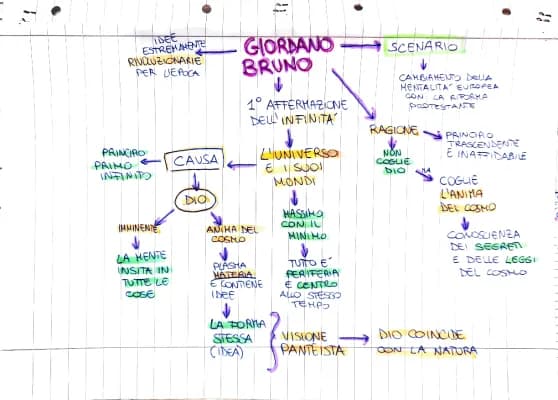 GIORDANO
BRUNO
IDEE
ESTREMAMENTE
RIVOLUZIONARIE
PER L'EPOCA
SCENARIO
CAMBIAMENTO DELLA
MENTALITÀ EUROPEA
CON LA RIFORMA
PROTESTANTE
1° AFFERMAZIONE
DELL'INFINITÀ
RAGIONE
PRINCIPIO
TRASCENDENTE
E INAFFIDABILE
NON
COGLIE
DIO
MA
COGLIE
L'ANIMA
DEL COSMO
CONOSCIENZA
DEI SEGRETI
E DELLE LEGGI
DEL COSMO
L'UNIVERSO
E I SUOI
MONDI
CAUSA
PRINCIPIO
PRIMO
INFINITO
DIO
IMMINENTE
LA MENTE
INSITA IN
TUTTE LE
COSE
ANIMA DEL
COSMO
PLASMA
MATERIA
E CONTIENE
IDEE
LA FORMA
STESSA
(IDEA)
MASSIMO
CON IL
MINIMO
TUTTO E'
PERIFERIA
E CENTRO
ALLO STESSO
TEMPO
VISIONE
PANTEISTA
DIO COINCIDE
CON LA NATURA